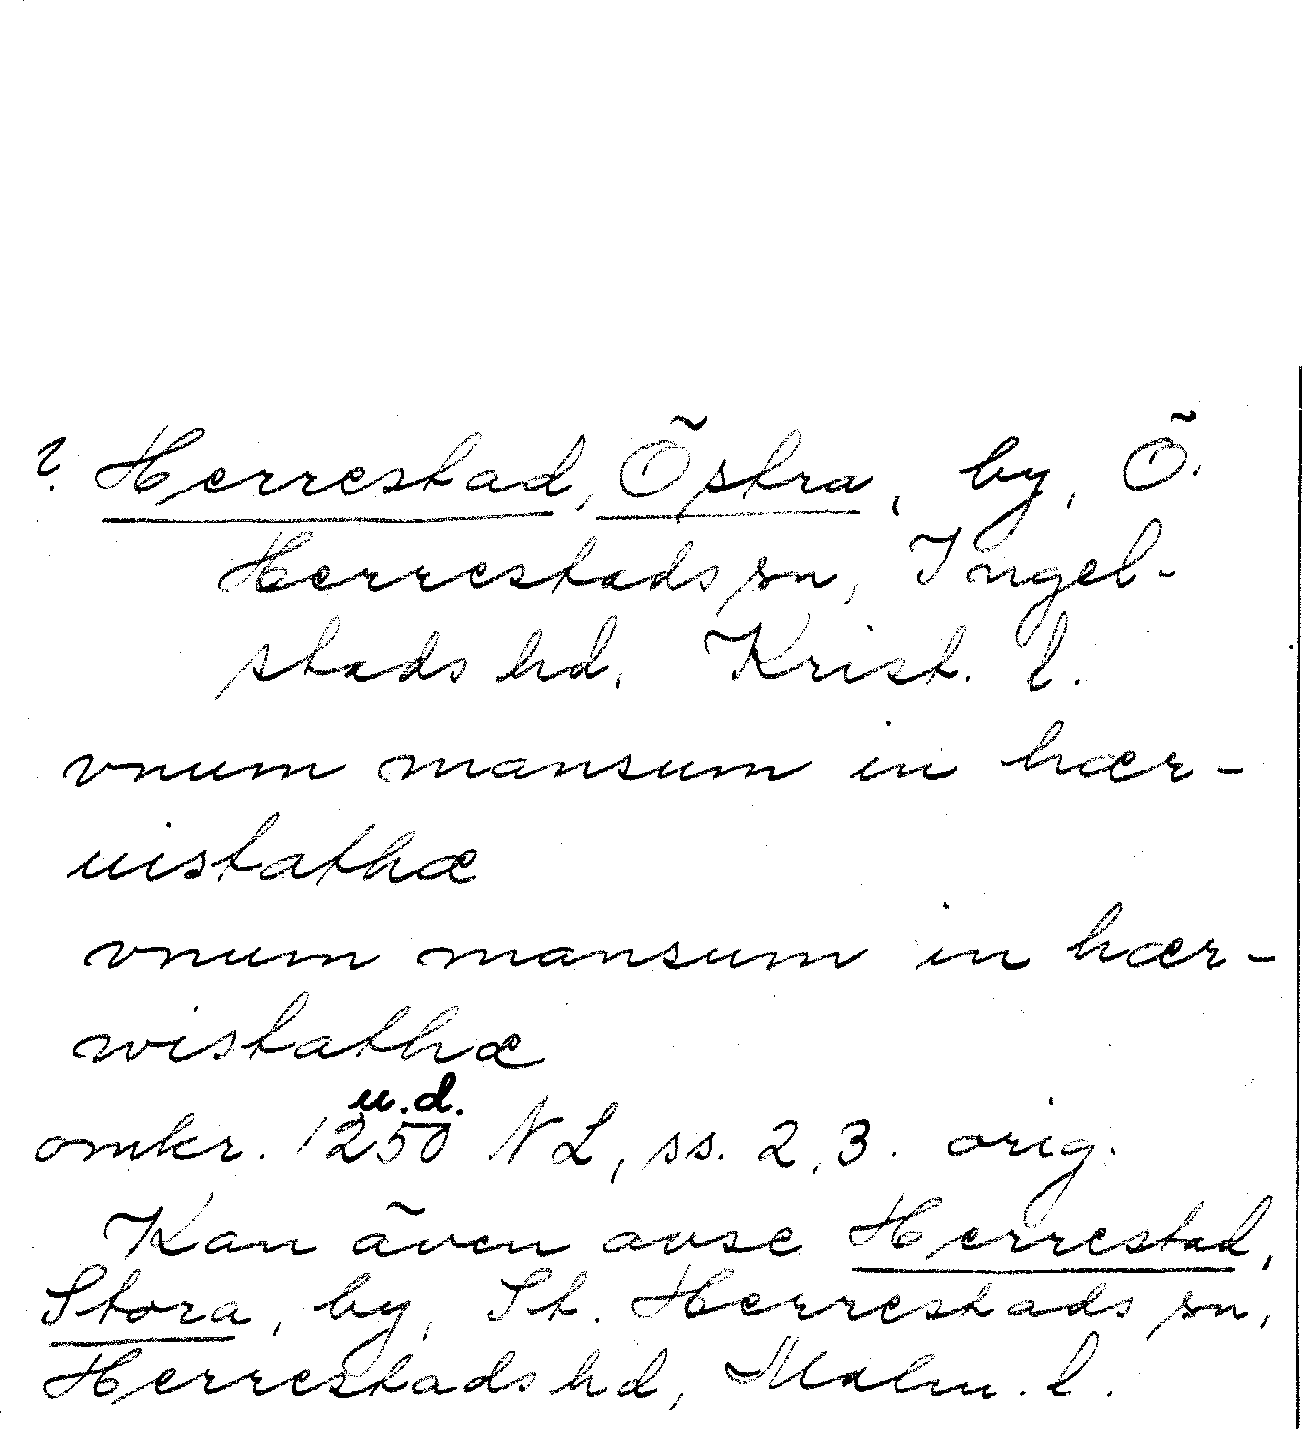 ? Herrestad, Östra, by, Ö.
Herrestads sn, Ingel-
stads hd. Krist. l.
vnum mansum in hær-
uistathæ
vnum mansum in hær-
wistathæ
u.d.
omkr. 1250 NL, ss. 2, 3. orig.
Kan även avse Herrestad,
Stora, by, St. Herrestads sn,
Herrestads hd, Malm. l.